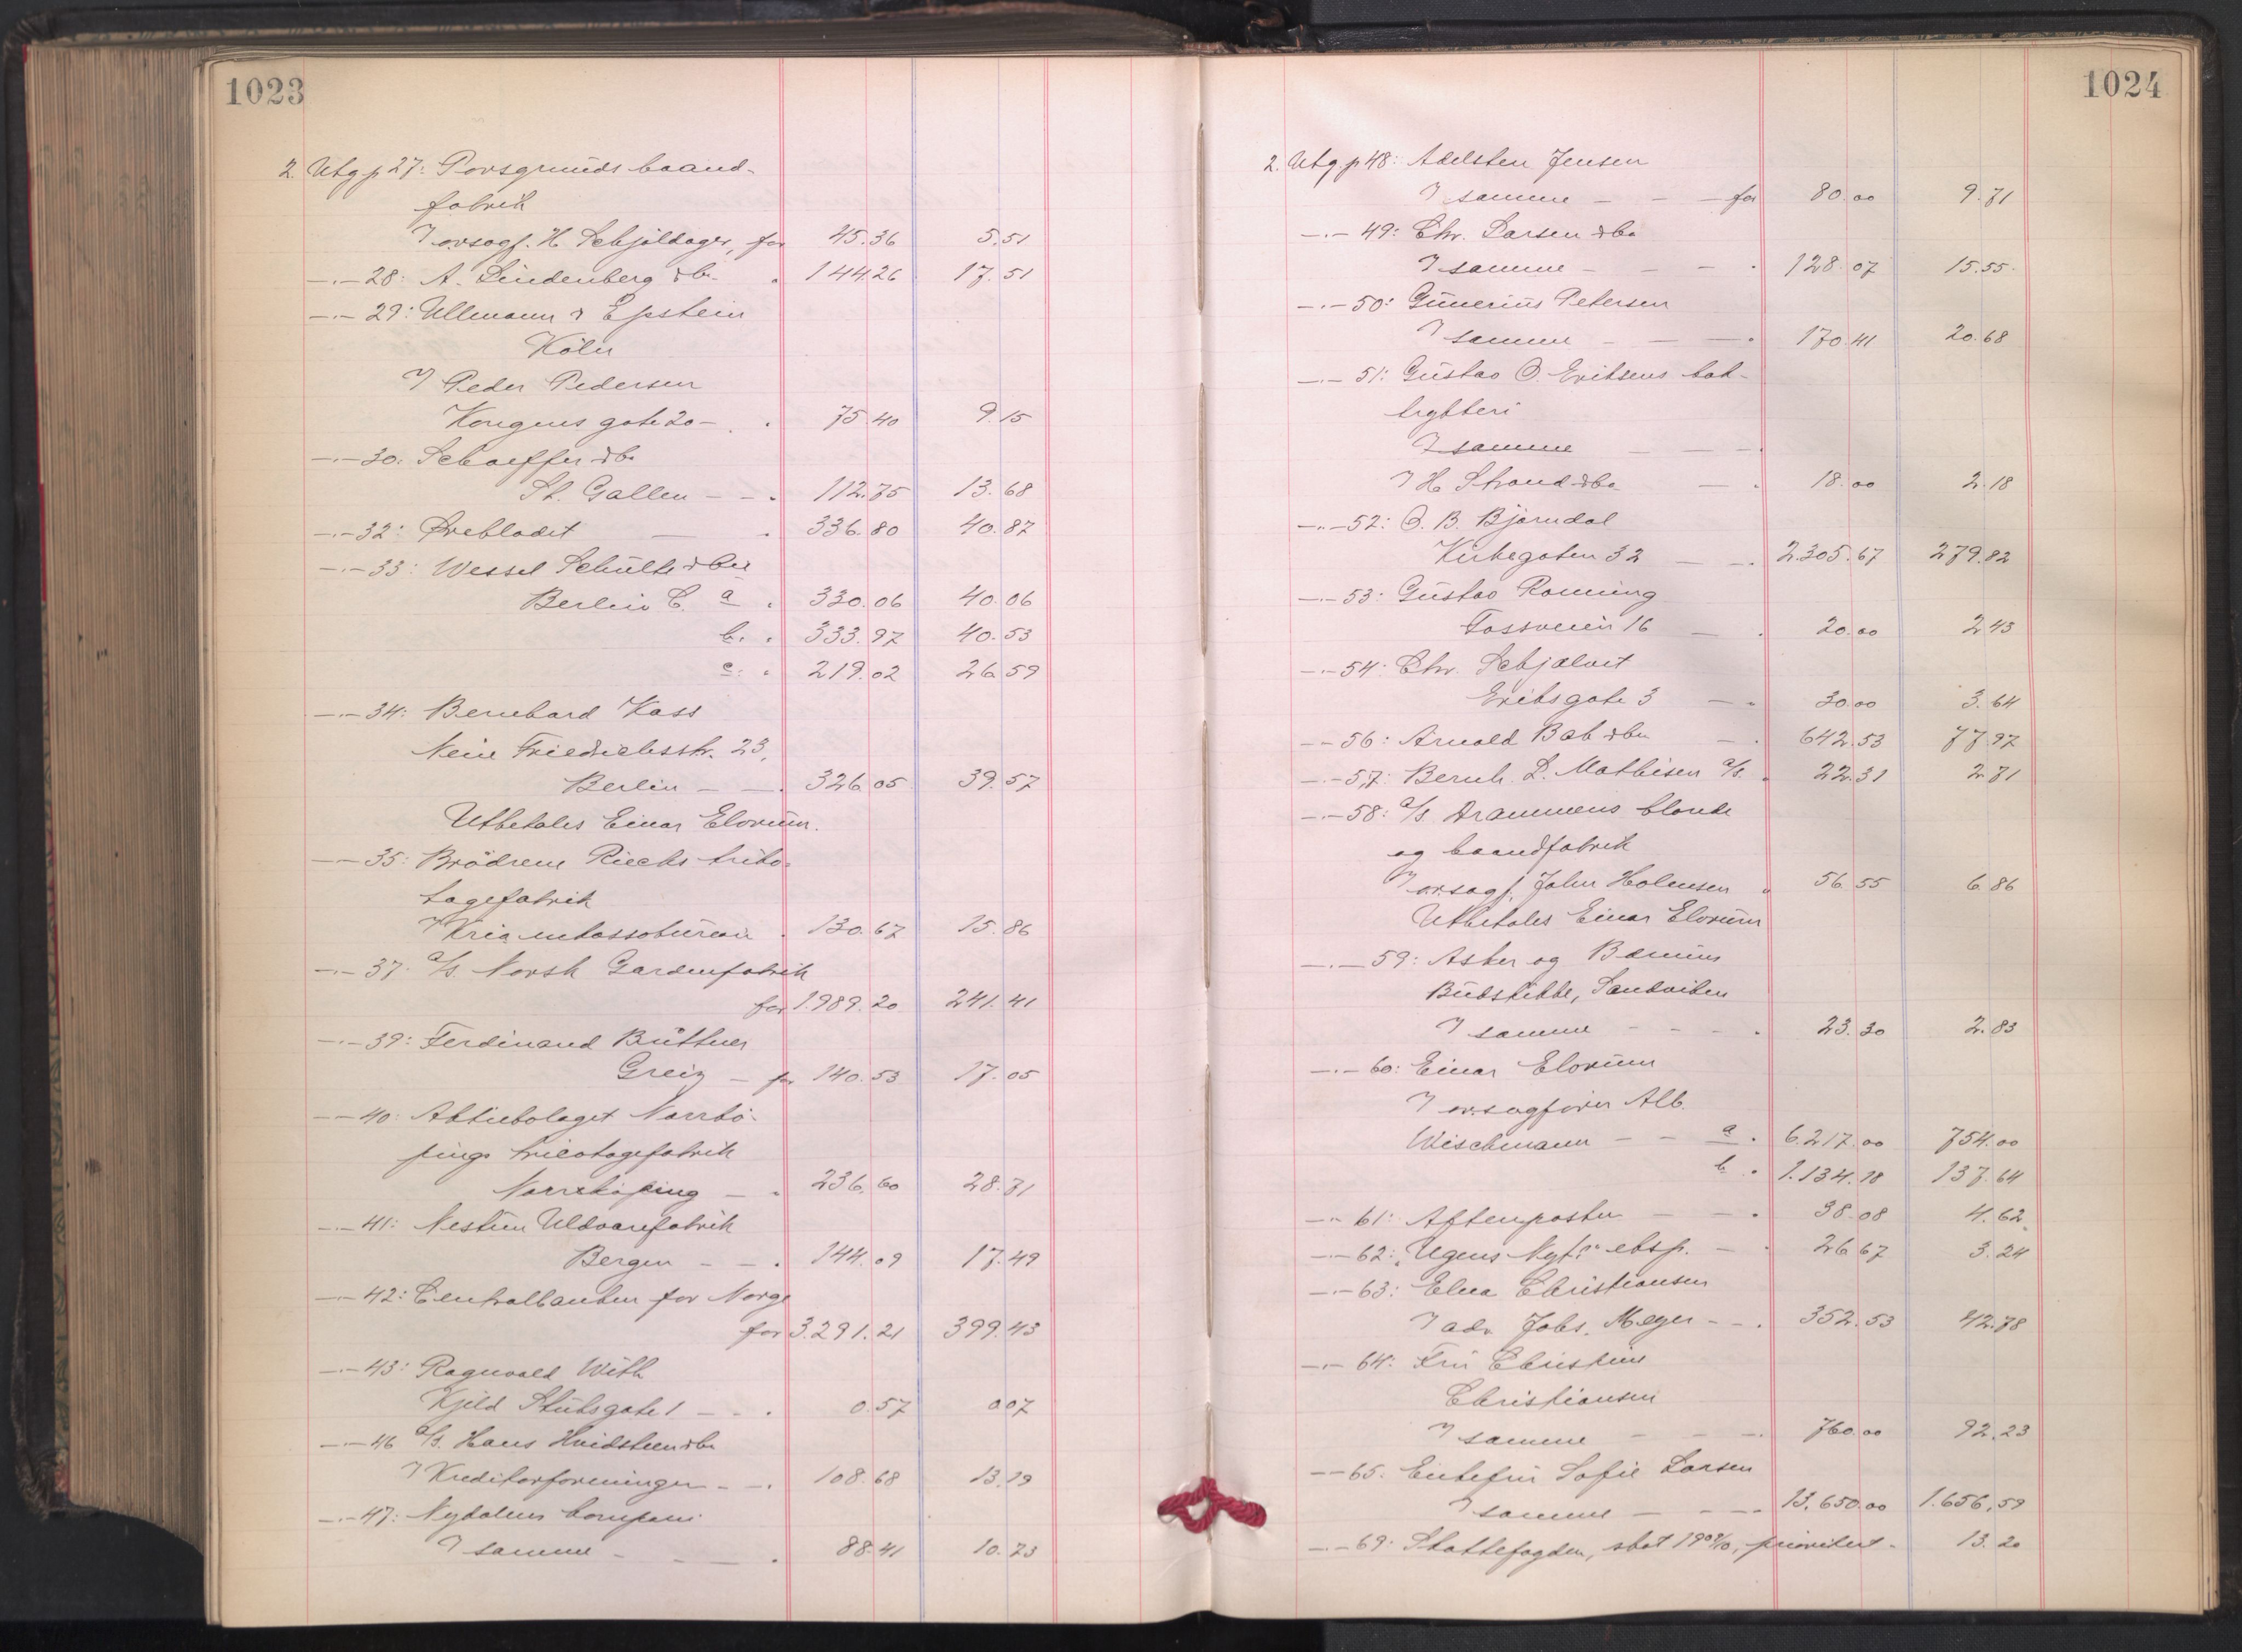 1023
2. Utg. p 27: Porsgrunds baand-
fabrik
v/ o.r.sagf. H. Schjöldager, for 45.36 5.51
—·— 28: A. Lindenberg & Co. " 144.26 17.51
—·— 29: Ullmann & Epstein
Köln
v/ Peder Pedersen
Kongens gate 20 — " 75.40 9.15
—·— 30: Schaeffer & Co
St. Gallen — — " 112.75 13.68
—·— 32: Ørebladet — " 336.80 40.87
—·— 33: Wessel Schülte & Co
Berlin C. a " 330.06 40.06
b. " 333.97 40.53
c. " 219.02 26.59
—·— 34: Bernhard Kass
Neue Friedrichsstr. 23,
Berlin — — " 326.05 39.57
Utbetales Einar Elorum.
—·— 35: Brödrene Riecks triko-
tagefabrik
v/ Kria inkassobureau " 130.67 15.86
—·— 37: a/s. Norsk Gardinfabrik
for 1.989.20 241.41
—·— 39: Ferdinand Büttner
Greiz — for 140.53 17.05
—·— 40: Aktiebolaget Norrkö-
pings tricotagefabrik
Norrköping — " 236.60 28.71
—·— 41: Nestun Uldvarefabrik
Bergen — — " 144.09 17.49
—·— 42: Centralbanken for Norge
for 3.291.21 399.43
—·— 43: Ragnvald With
Kjeld Stubsgate 1 — — " 0.57 0.07
—·— 46 a/s. Hans Hvidsteen & Co
v/ Kreditorforeningen — — " 108.68 13.19
—·— 47: Nydalens Compani
v/ samme — — — " 88.41 10.73
1024
2. Utg. p 48: Adelsten Jensen
v/ samme — — — for 80.00 9.71
—·— 49: Chr. Larsen & Co
v/ samme — — — " 128.07 15.55
—·— 50: Gunerius Petersen
v/ samme — — — " 170.41 20.68
—·— 51: Gustav O. Eriksens bok-
trykkeri
v/ samme — — —
v/ H. Strand & Co — " 18.00 2.18
—·— 52: O. B. Bjørndal
Kirkegaten 32 — — " 2.305.67 279.82
—·— 53: Gustav Ronning
Fossveien 16 — " 20.00 2.43
—·— 54: Chr. Schjalvet
Eriksgate 3 — " 30.00 3.64
—·— 56: Arnold Bab & Co — " 642.53 77.97
—·— 57: Bernh. L. Mathisen a/s. " 22.31 2.71
—·— 58: a/s. Drammens blonde
og baandfabrik
v/ o.r.sagf. John Holmsen " 56.55 6.86
Utbetales Einar Elorum
—·— 59: Asker og Bærums
Budstikke, Sandviken
v/ samme — — — " 23.30 2.83
—·— 60: Einar Elorum
v/ o.r.sagfører Alb.
Wischmann — — a. " 6.217.00 754.00
b. " 1.134.18 137.64
—·— 61: Aftenposten — — " 38.08 4.62
—·— 62: "Ugens Nyt's" eksp. — " 26.67 3.24
—·— 63: Elna Christiansen
v/ adv. Johs. Meyer — — " 352.53 42.78
—·— 64: Fru Christine
Christiansen
v/ samme — — — " 760.00 92.23
—·— 65: Enkefru Sofie Larsen
v/ samme — — — 13.650.00 1.656.59
—·— 69: Skattefogden, skat 1909/10, prioritert - 13.20